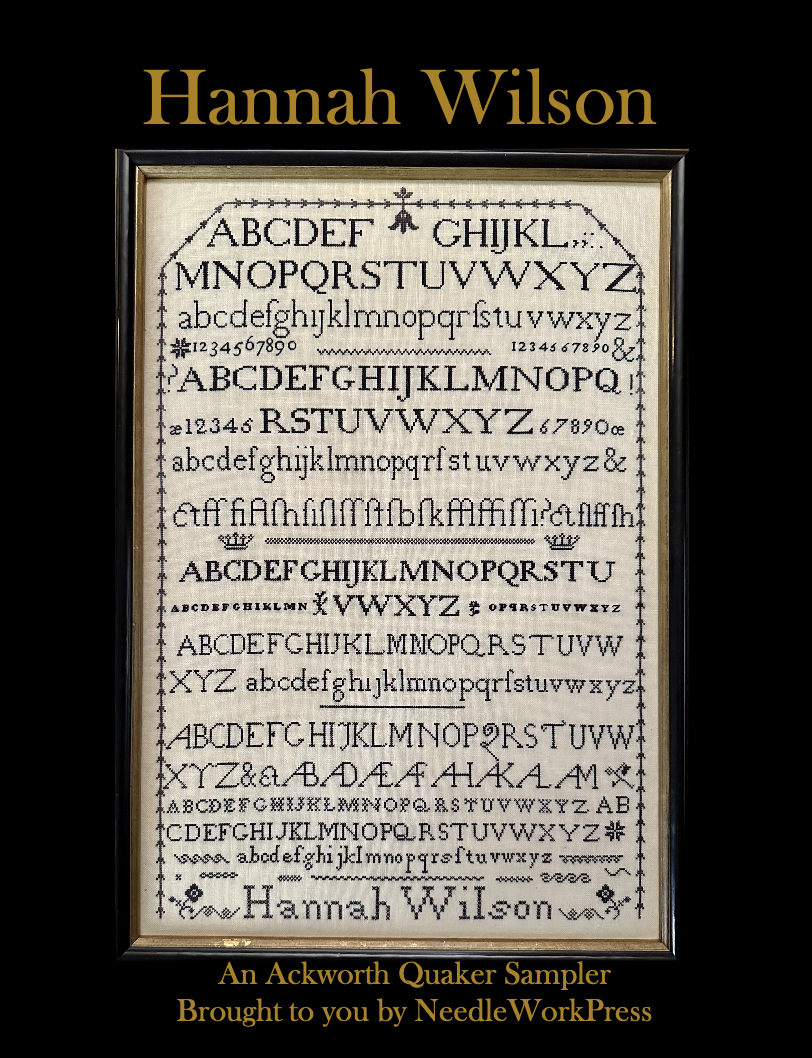 Hannah Wilson
ABCDEF GHIJKL,,;:.
MNOPQRSTUVWXYZ
abcdefghijklmnopqrſstuvwxyz
1234567890 1234567890&
?ABCDEFGHIJKLMNOPQ!
æ12345 RSTUVWXYZ 67890œ
abcdefghijklmnopqrſstuvwxyz&
ABCDEFGHIJKLMNOPQRSTU
ABCDEFGHIKLMN VWXYZ OPQRSTUVWXYZ
ABCDEFGHIJKLMNOPQRSTUVW
XYZ abcdefghijklmnopqrſstuvwxyz
ABCDEFGHIJKLMNOPQRSTUVW
ABCDEFGHIJKLMNOPQRSTUVWXYZ AB
CDEFGHIJKLMNOPQRSTUVWXYZ
abcdefghijklmnopqrsſtuvwxyz
Hannah Wilson
An Ackworth Quaker Sampler
Brought to you by NeedleWorkPress